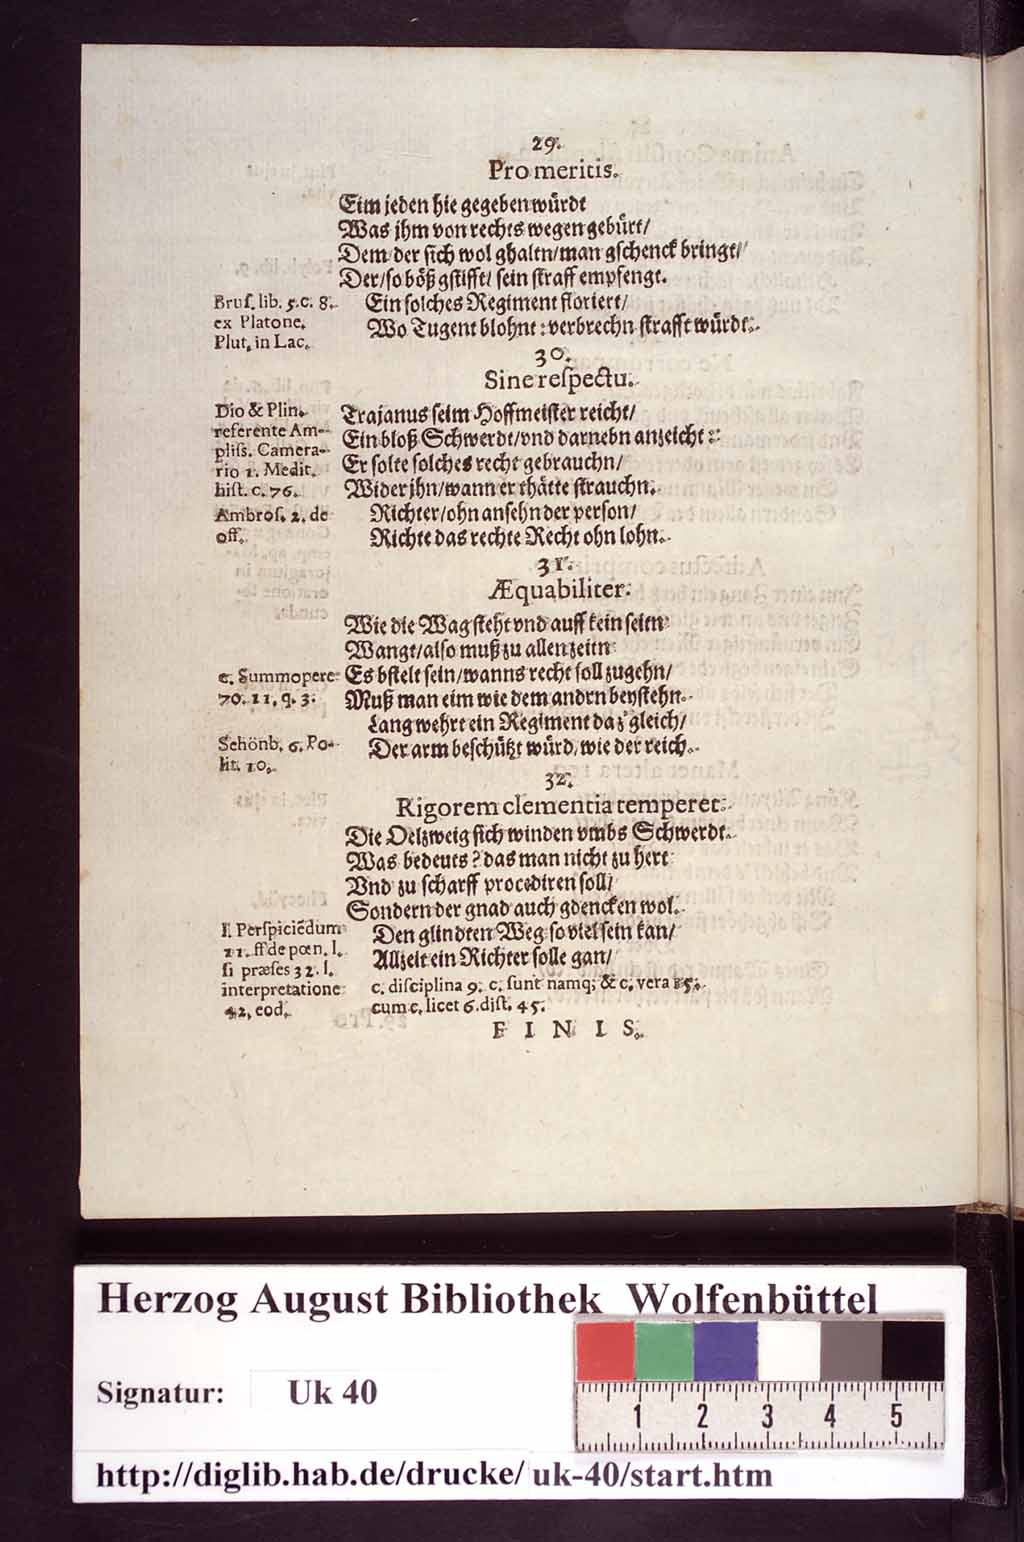 29.
Pro meritis.
Eim jeden hie gegeben würdt
Was jhm von rechts wegen gebürt/
Dem der sich wol ghaltn/man gschenck bringt/
Der/so böß gstifft/sein straff empfengt.
Brus. lib. 5. c. 8.
ex Platone.
Plut. in Lac.
Ein solches Regiment floriert/
Wo Tugent blohnt: verbrechn strafft würdt.
30.
Sine respectu.
Dio & Plin.
referente Am-
pliss. Camera-
rio 1. Medit.
hist. c. 76.
Ambros. 2. de
off.
Trajanus seim Hoffmeister reicht/
Ein bloß Schwerdt/vnd darnebn anzeicht:
Er solte solches recht gebrauchn/
Wider jhn/wann er thätte strauchn.
Richter/ohn ansehn der person/
Richte das rechte Recht ohn lohn.
31.
Æquabiliter.
Wie die Wag steht vnd auff kein seitn
Wangt/also muß zu allen zeitn
c. Summopere
70. 11. q. 3.
Es bstelt sein/wanns recht soll zugehn/
Muß man eim wie dem andrn beystehn.
Lang wehrt ein Regiment da z'gleich/
Schönb. 6. Po-
lit. 10.
Der arm beschützt würd, wie der reich.
32.
Rigorem clementia temperet.
Die Oelzweig sich winden vmbs Schwerdt.
Was bedeuts? das man nicht zu hert
Vnd zu scharff procediren soll/
Sondern der gnad auch gdencken wol.
l. Perspiciēdum
11. ff de pœn. l.
si præses 32. l.
interpretatione
42. eod.
Den glindten Weg so viel sein kan/
Allzeit ein Richter solle gan/
c. disciplina 9. c. sunt namq; & c. vera 15.
cum c. licet 6. dist. 45.
F I N I S.
Herzog August Bibliothek Wolfenbüttel
Signatur: Uk 40
1 2 3 4 5
http://diglib.hab.de/drucke/uk-40/start.htm